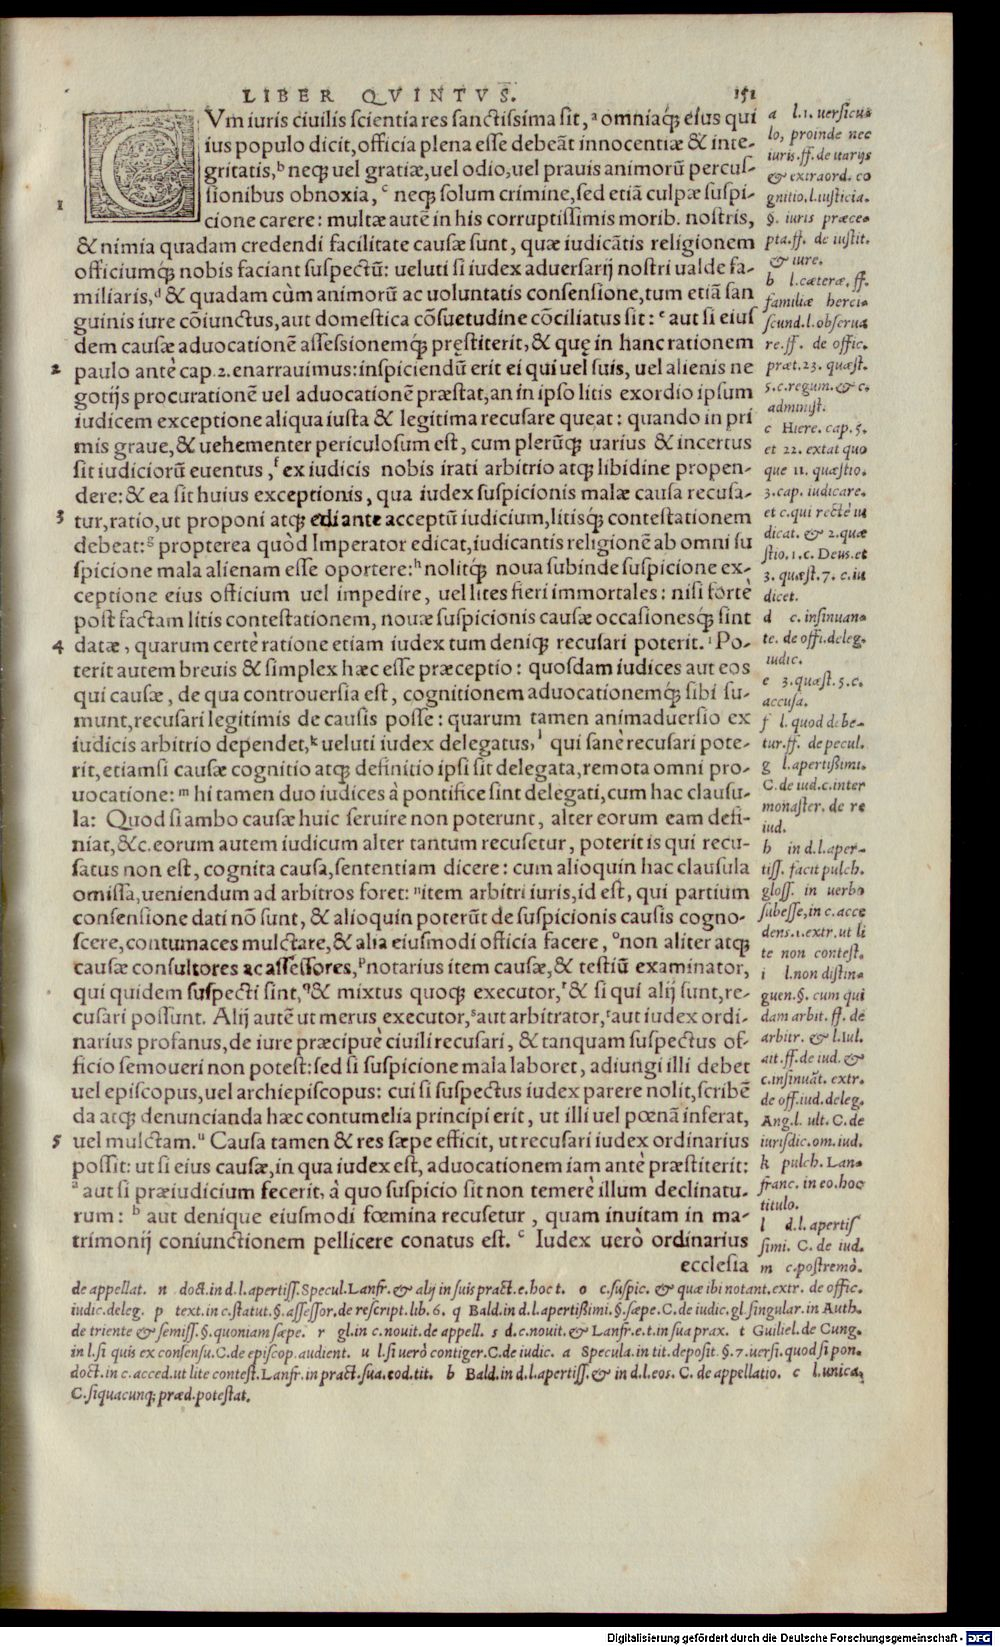 LIBER QVINTVS. 151
CVm iuris ciuilis scientia res sanctissima sit, ª omniaq́; eius qui
ius populo dicit, officia plena esse debeãt innocentiæ & inte-
gritatis, ᵇ neq; uel gratiæ, uel odio, uel prauis animorũ percus-
sionibus obnoxia, ᶜ neq; solum crimine, sed etiã culpæ suspi-
1 cione carere: multæ autẽ in his corruptissimis morib. nostris,
& nimia quadam credendi facilitate causæ sunt, quæ iudicãtis religionem
officiumq́; nobis faciant suspectũ: ueluti si iudex aduersarij nostri ualde fa-
miliaris, ᵈ & quadam cùm animorũ ac uoluntatis consensione, tum etiã san
guinis iure cõiunctus, aut domestica cõsuetudine cõciliatus sit: ᵉ aut si eius
dem causæ aduocationẽ assessionemq́; pręstiterit, & quę in hanc rationem
2 paulo antè cap. 2. enarrauimus: inspiciendũ erit ei qui uel suis, uel alienis ne
gotijs procurationẽ uel aduocationẽ præstat, an in ipso litis exordio ipsum
iudicem exceptione aliqua iusta & legitima recusare queat: quando in pri
mis graue, & uehementer periculosum est, cum plerũq; uarius & incertus
sit iudiciorũ euentus, ᶠ ex iudicis nobis irati arbitrio atq; libidine propen-
dere: & ea sit huius exceptionis, qua iudex suspicionis malæ causa recusa-
3 tur, ratio, ut proponi atq; edi ante acceptũ iudicium, litisq́; contestationem
debeat: ᵍ propterea quòd Imperator edicat, iudicantis religionẽ ab omni su
spicione mala alienam esse oportere: ʰ nolitq́; noua subinde suspicione ex-
ceptione eius officium uel impedire, uel lites fieri immortales: nisi fortè
post factam litis contestationem, nouæ suspicionis causæ occasionesq́; sint
4 datæ, quarum certè ratione etiam iudex tum deniq; recusari poterit. ⁱ Po-
terit autem breuis & simplex hæc esse præceptio: quosdam iudices aut eos
qui causæ, de qua controuersia est, cognitionem aduocationemq́; sibi su-
munt, recusari legitimis de causis posse: quarum tamen animaduersio ex
iudicis arbitrio dependet, ᵏ ueluti iudex delegatus, ˡ qui sanè recusari pote-
rit, etiamsi causæ cognitio atq; definitio ipsi sit delegata, remota omni pro-
uocatione: ᵐ hi tamen duo iudices à pontifice sint delegati, cum hac clausu-
la: Quod si ambo causæ huic seruire non poterunt, alter eorum eam defi-
niat, &c. eorum autem iudicum alter tantum recusetur, poterit is qui recu-
satus non est, cognita causa, sententiam dicere: cum alioquin hac clausula
omissa, ueniendum ad arbitros foret: ⁿ item arbitri iuris, id est, qui partium
consensione dati nõ sunt, & alioquin poterũt de suspicionis causis cogno-
scere, contumaces mulctare, & alia eiusmodi officia facere, ᵒ non aliter atq;
causæ consultores ac assessores, ᵖ notarius item causæ, & testiũ examinator,
qui quidem suspecti sint, ᑫ & mixtus quoq; executor, ʳ & si qui alij sunt, re-
cusari possunt. Alij autẽ ut merus executor, ˢ aut arbitrator, ᵗ aut iudex ordi-
narius profanus, de iure præcipuè ciuili recusari, & tanquam suspectus of-
ficio semoueri non potest: sed si suspicione mala laboret, adiungi illi debet
uel episcopus, uel archiepiscopus: cui si suspectus iudex parere nolit, scribẽ
da atq; denuncianda hæc contumelia principi erit, ut illi uel pœnã inferat,
5 uel mulctam. ᵘ Causa tamen & res sæpe efficit, ut recusari iudex ordinarius
possit: ut si eius causæ, in qua iudex est, aduocationem iam antè præstiterit:
ª aut si præiudicium fecerit, à quo suspicio sit non temerè illum declinatu-
rum: ᵇ aut denique eiusmodi fœmina recusetur, quam inuitam in ma-
trimonij coniunctionem pellicere conatus est. ᶜ Iudex uerò ordinarius
ecclesia
a l.1. uersicu
lo, proinde nec
iuris. ff. de uarijs
& extraord. co
gnitio, l. iusticia.
§. iuris præce-
pta. ff. de iustit.
& iure.
b l. cæteræ, ff.
familiæ herci-
scund. l. obserua
re. ff. de offic.
præt. 23. quæst.
5. c. regum. & c.
administ.
c Hiere. cap. 5.
et 22. extat quo
que 11. quæstio.
3. cap. iudicare.
et c. qui rectè iu
dicat. & 2. quæ
stio. 1. c. Deus. et
3. quæst. 7. c. iu
dicet.
d c. insinuan-
te. de offi. deleg.
iudic.
e 3. quæst. 5. c.
accusa.
f l. quod debe-
tur. ff. de pecul.
g l. apertißimi.
C. de iud. c. inter
monaster. de re
iud.
h in d. l. aper-
tiss. facit pulch.
gloss. in uerbo
subesse, in c. acce
dens. 1. extr. ut li
te non contest.
i l. non distin-
guen. §. cum qui
dam arbit. ff. de
arbitr. & l. Iul.
ait. ff. de iud. &
c. insinuãt. extr.
de off. iud. deleg.
Ang. l. ult. C. de
iurisdic. om. iud.
k pulch. Lan-
franc. in eo. hoc
titulo.
l d. l. apertis
simi. C. de iud.
m c. postremò.
de appellat. n doct. in d. l. apertiss. Specul. Lanfr. & alij in suis pract. e. hoc t. o c. suspic. & quæ ibi notant. extr. de offic.
iudic. deleg. p text. in c. statut. §. assessor. de rescript. lib. 6. q Bald. in d. l. apertißimi. §. sæpe. C. de iudic. gl. singular. in Auth.
de triente & semiss. §. quoniam sæpe. r gl. in c. nouit. de appell. s d. c. nouit. & Lanfr. e. t. in sua prax. t Guiliel. de Cung.
in l. si quis ex consensu. C. de episcop. audient. u l. si uerò contiger. C. de iudic. a Specula. in tit. deposit §. 7. uersi. quod si pon.
doct. in c. acced. ut lite contest. Lanfr. in pract. sua. eod. tit. b Bald. in d. l. apertiss. & in d. l. eos. C. de appellatio. c l. unica.
C. si quacunq; præd. potestat.
Digitalisierung gefördert durch die Deutsche Forschungsgemeinschaft - DFG